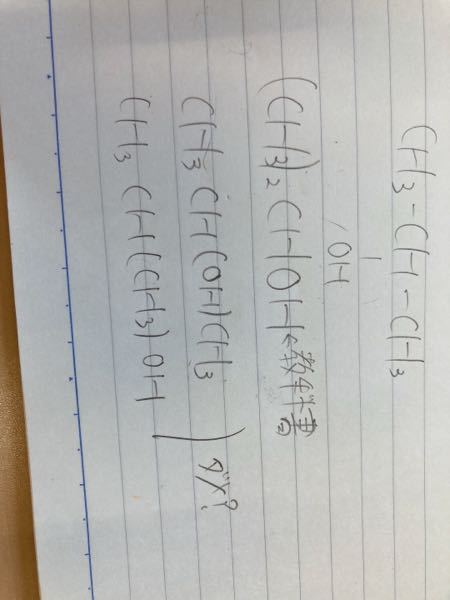 CH3-CH-CH3
|
OH
(CH3)2CHOH←教科書
CH3CH(OH)CH3
CH3CH(CH3)OH
ダメ?